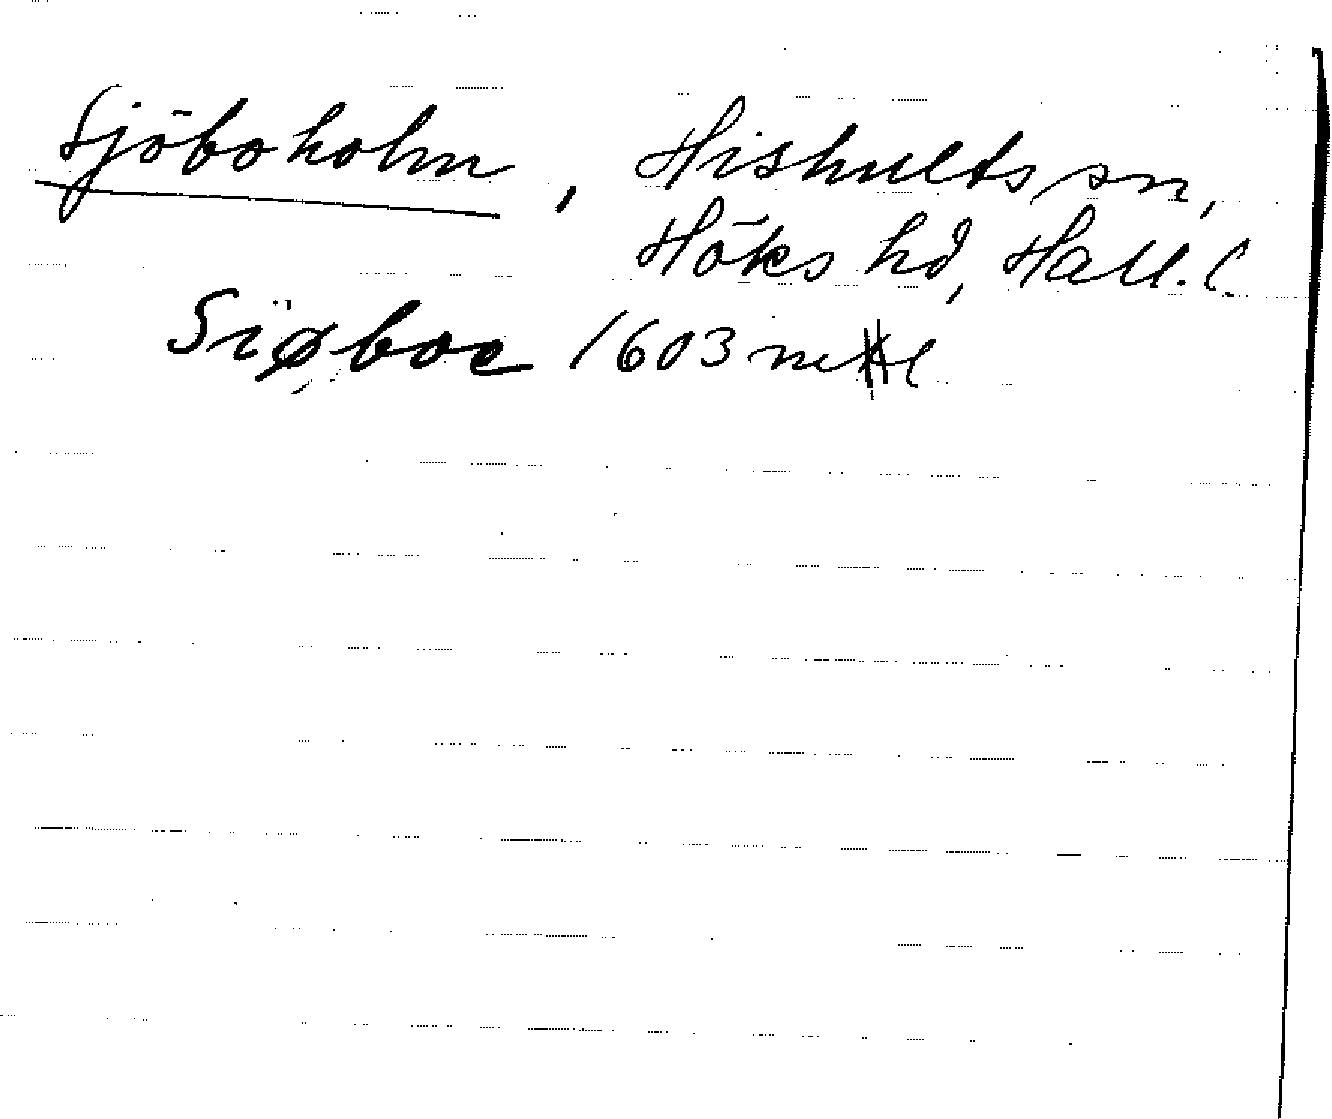 Sjöboholm, Hishults sn,
Höks hd, Hall. l.
Siøboe 1603